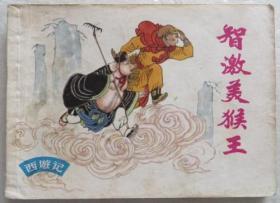 智激美猴王
西遊记